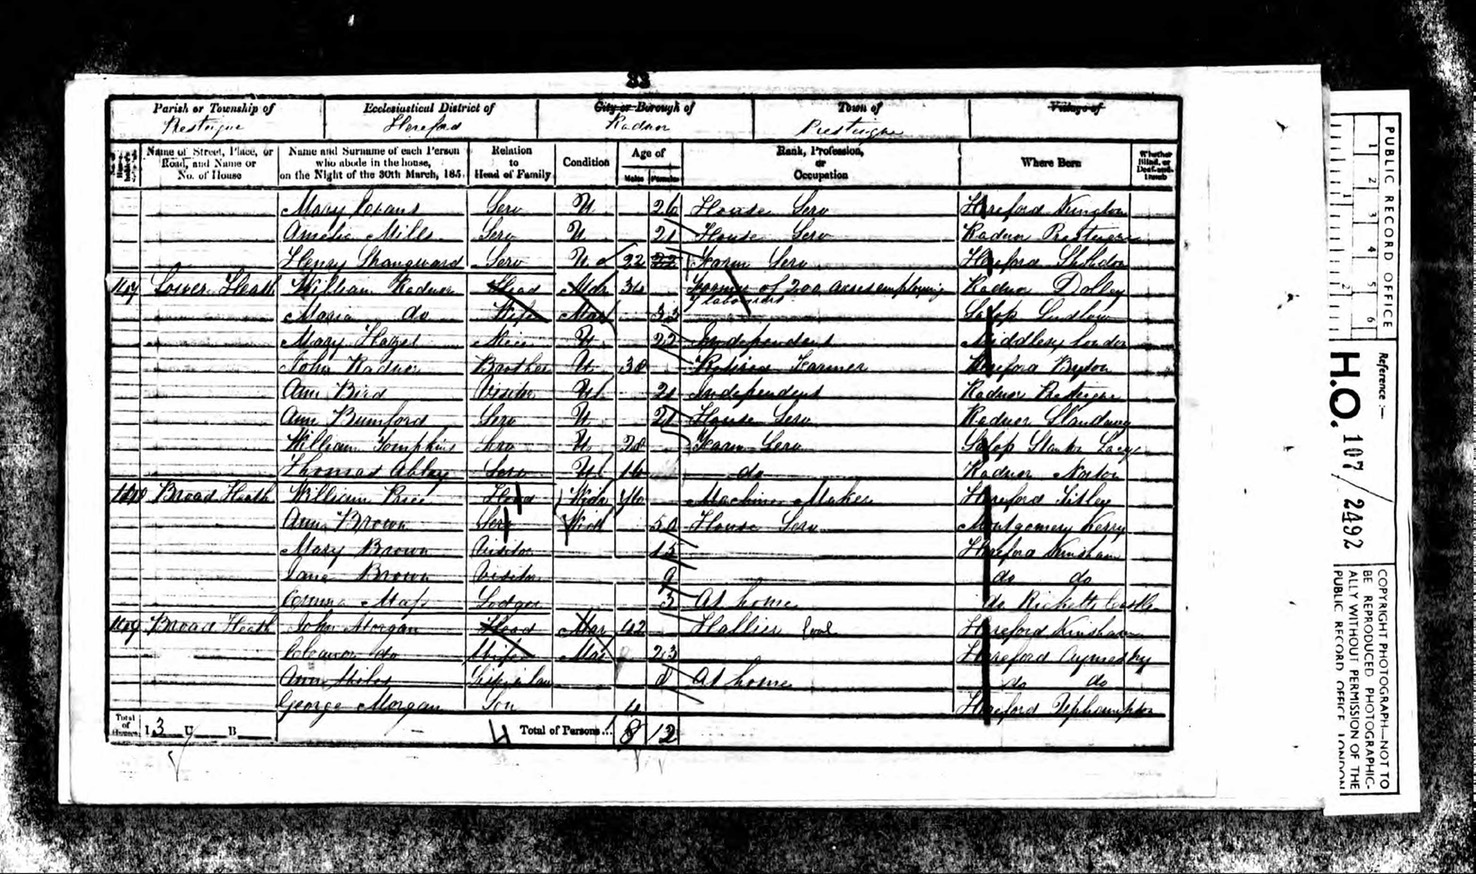 33
Parish or Township of Ecclesiastical District of City or Borough of Town of Village of
Presteigne Hereford Radnor Presteigne
Name of Street, Place, or Road, and Name or No. of House
Name and Surname of each Person who abode in the house, on the Night of the 30th March, 185
Relation to Head of Family
Condition
Age of
Males Females
Rank, Profession, or Occupation
Where Born
Whether Blind, or Deaf-and-Dumb
Mary Evans Serv U 26 House Serv Hereford
Amelia Mills Serv U 21 House Serv Radnor Presteigne
Henry Serv U 22 Farm Serv Hereford
Lower Heath William Radnor Head Mar 34 Farmer of 200 acres employing Radnor
labourers
Maria do Wife Mar 33 Salop Ludlow
Mary U 22 Independent London
John Radnor Brother U 30 Retired Farmer Hereford Byton
Ann Bird Visitor U 21 Independent Radnor Presteigne
Ann Bumford Serv U 21 House Serv Radnor
William Tompkins Serv U 20 Farm Serv Salop Stanton Lacy
Thomas Abley Serv U 16 do Radnor Norton
Broad Heath William Price Head Widr 46 Machine Maker Hereford Titley
Ann Brown Serv Wid 50 House Serv Montgomery Kerry
Mary Brown Visitor 15 Hereford Kinsham
Jane Brown Visitor 9 do do
Emma Lodger 3 At home do Richards Castle
Broad Heath John Morgan Head Mar 42 Hallier Coal Hereford Kinsham
Eleanor do Wife Mar 23 Hereford Aymestry
Ann Miles At home do do
George Morgan Son 4 Hereford
Total of Houses I 3 U B Total of Persons... 8 12
PUBLIC RECORD OFFICE
1 2 3 4 5 6
1 2
Reference :—
H.O. 107/2492
COPYRIGHT PHOTOGRAPH—NOT TO
BE REPRODUCED PHOTOGRAPHIC-
ALLY WITHOUT PERMISSION OF THE
PUBLIC RECORD OFFICE, LONDON